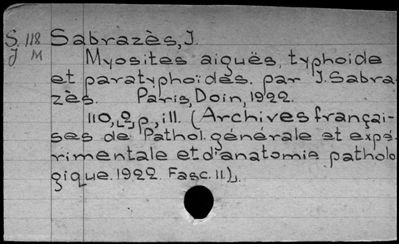 S. 118 Sabrazès, J.
J M Myosites aiguës, typhoide
et paratyphoïdes, par J. Sabra-
zès. Paris, Doin, 1922.
110, [2] p., ill. (Archives françai-
ses de Pathol. générale et expé-
rimentale et d'anatomie patholo
gique. 1922 Fasc. II).